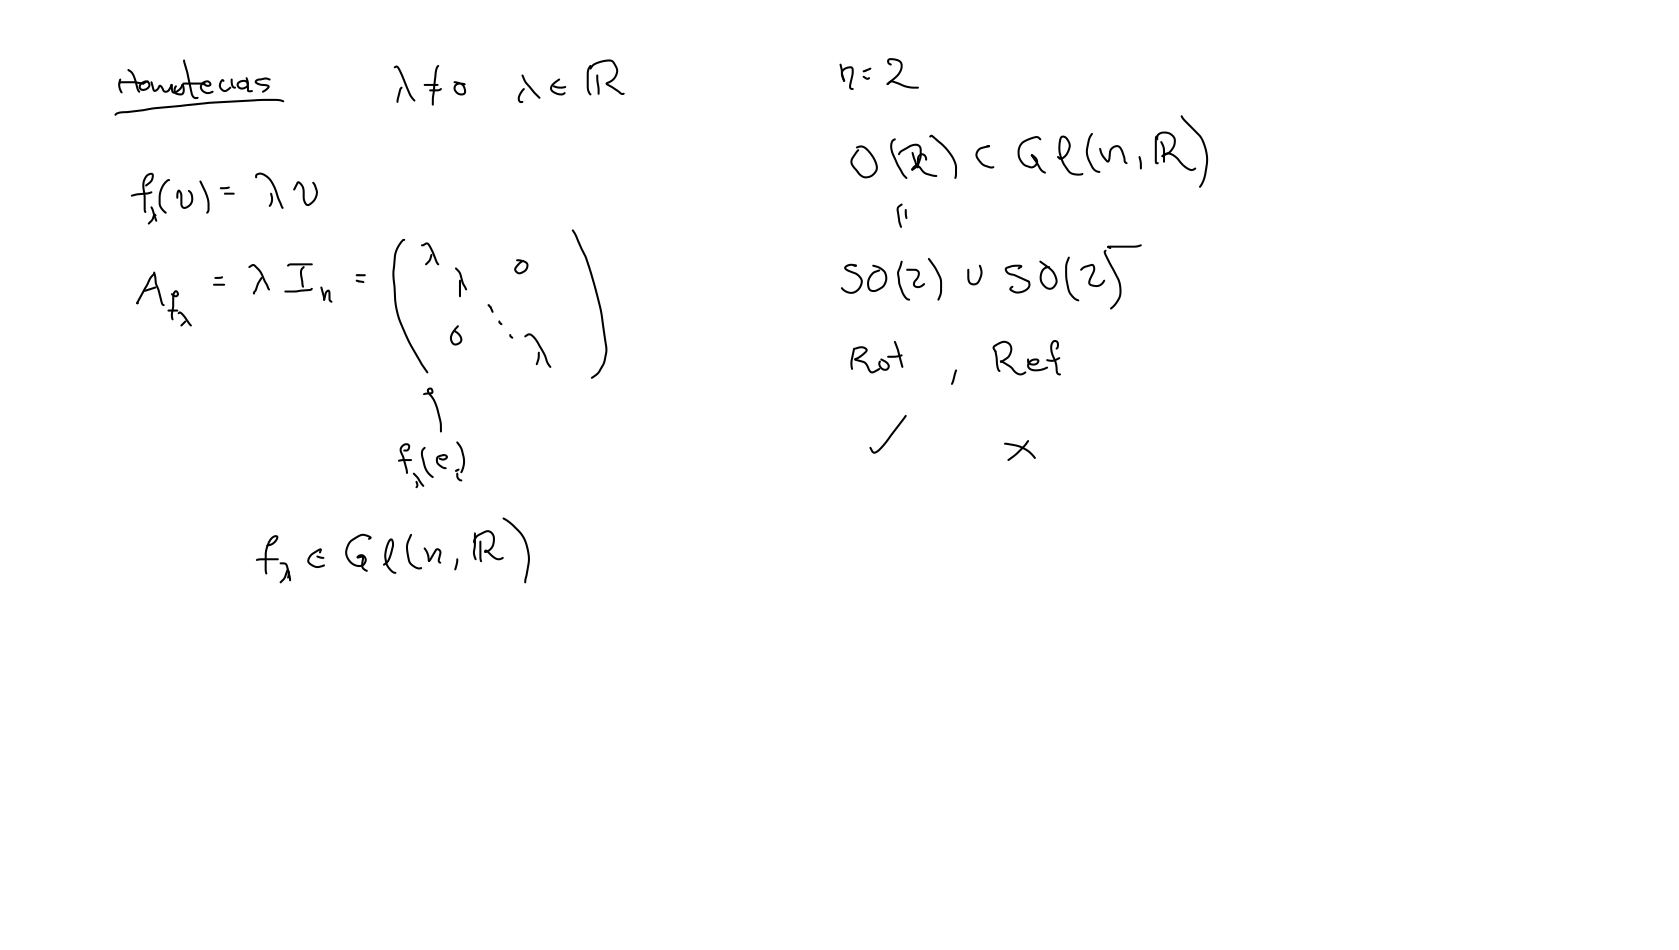 Homotecias λ ≠ 0 λ ∈ ℝ
f_λ(v) = λ v
A_{f_λ} = λ I_n = ( λ λ 0 0 ⋱ λ )
f_λ(e_i)
f_λ ∈ Gl(n, ℝ)
n = 2
O(2) ⊂ Gl(n, ℝ)
"
SO(2) ∪ SO(2)⁻
Rot , Ref
✓ ×